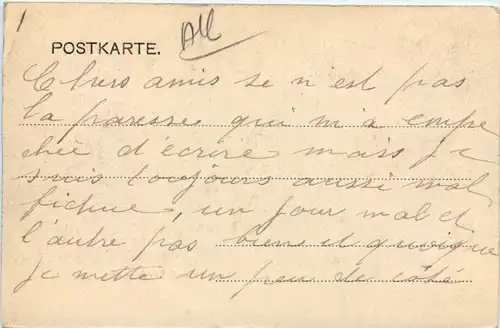 1
All
POSTKARTE.
Chers amis se n'est pas
la paresse qui m'a empe
chée d'ecrire mais je
suis toujours aussi mal
fichue, un jour mal et
l'autre pas bien et quoique
je mette un peu de côté